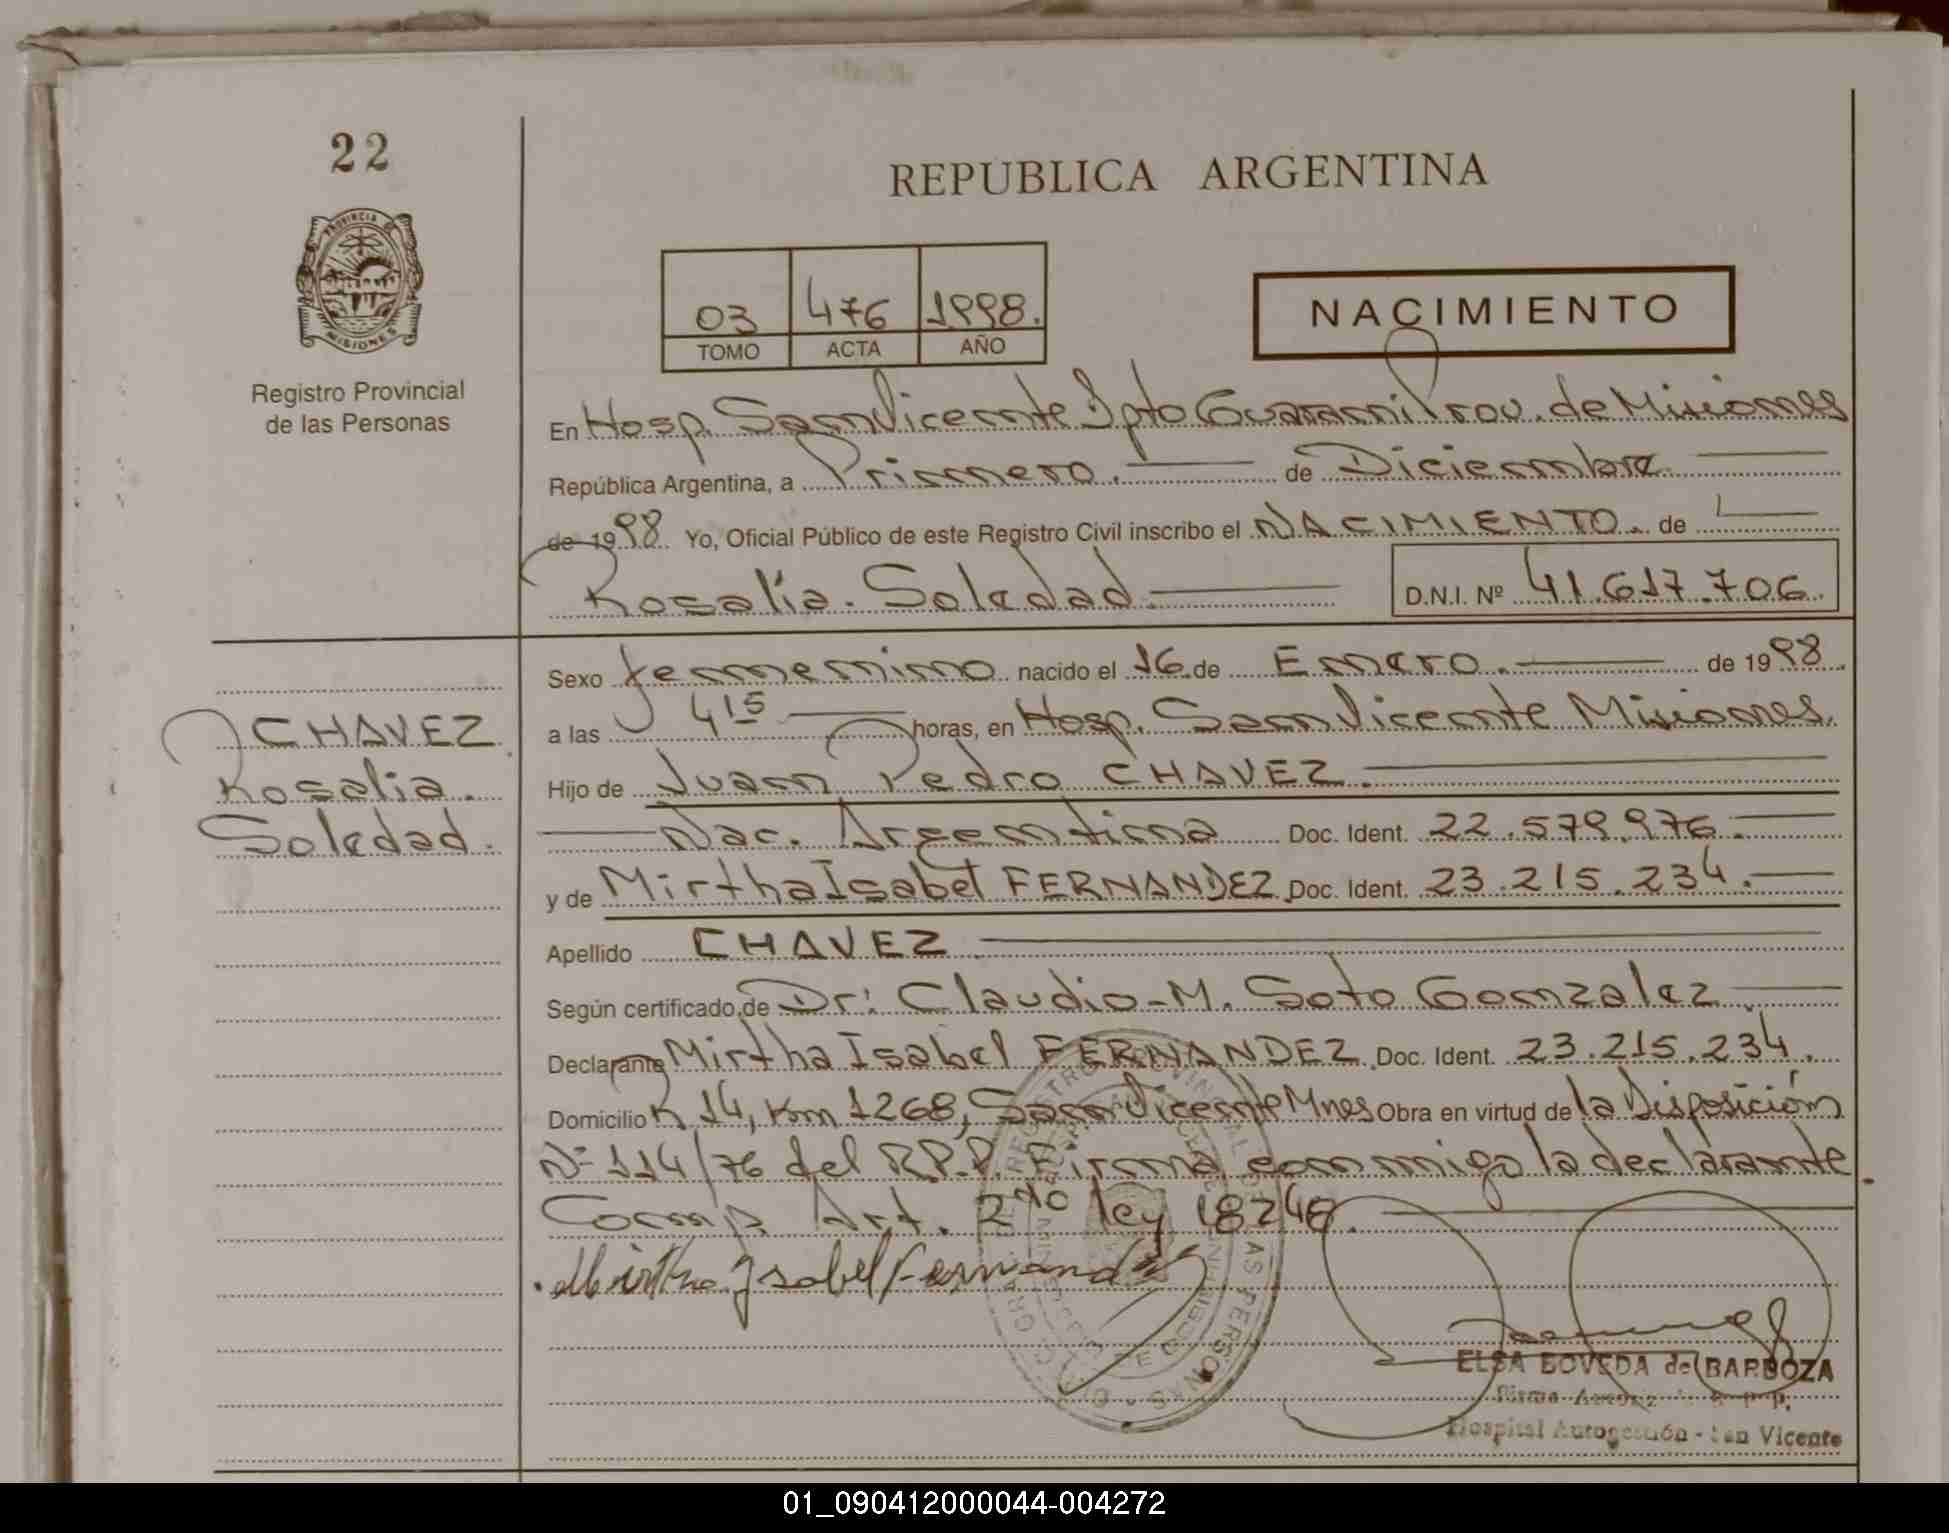 22
PROVINCIA DE
MISIONES
Registro Provincial
de las Personas
REPUBLICA ARGENTINA
03 476 1998.
TOMO ACTA AÑO
NACIMIENTO
En Hosp. San Vicente Dpto Guarani Prov. de Misiones
República Argentina, a Primero. de Diciembre
de 1998 Yo, Oficial Público de este Registro Civil inscribo el NACIMIENTO. de
Rosalía. Soledad D.N.I. Nº 41.617.706.
CHAVEZ
Rosalia.
Soledad.
Sexo femenino nacido el 16 de Enero. de 1998.
a las 4 15 horas, en Hosp. San Vicente Misiones.
Hijo de Juan Pedro CHAVEZ.
Nac. Argentina Doc. Ident. 22.579.976.
y de Mirtha Isabel FERNANDEZ Doc. Ident. 23.215.234.
Apellido CHAVEZ
Según certificado de Dr: Claudio-M. Soto Gonzalez
Declarante Mirtha Isabel FERNANDEZ Doc. Ident. 23.215.234.
Domicilio R 14, Km 1268, San Vicente Mnes Obra en virtud de la Disposición
Nº 114/76 del R.P.P. Firma conmigo la declarante.
Comp. Art. 2do ley 18248.
Mirtha Isabel Fernandez
ELSA BOVEDA de BARBOZA
Hospital Autogestión - San Vicente
01_090412000044-004272